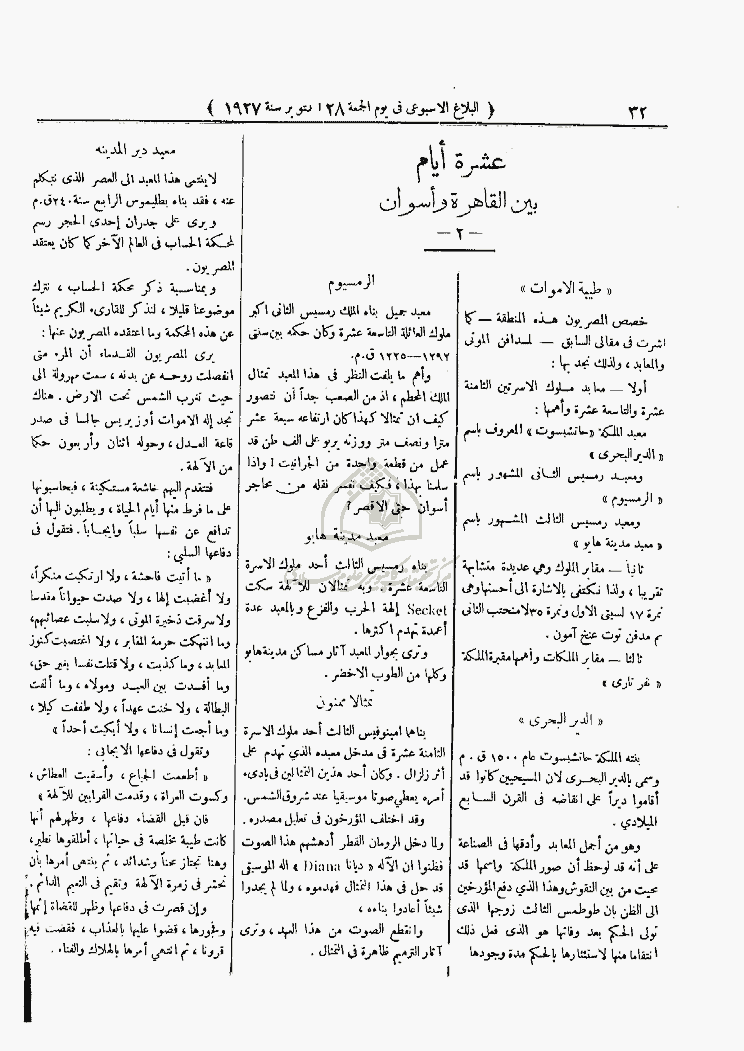 ٣٢
( البلاغ الاسبوعى فى يوم الجمعة ٢٨ اكتوبر سنة ١٩٢٧ )
عشرة أيام
بين القاهرة وأسوان
— ٢ —
« طيبة الاموات »
خصص المصريون هذه المنطقة — كما
اشرت فى مقالى السابق — لمدافن الموتى
والمعابد ، ولذلك نجد بها :
أولا — معابد ملوك الاسرتين الثامنة
عشرة والتاسعة عشرة وأهمها :
معبد الملكة «حاتشبسوت» المعروف باسم
« الدير البحرى »
ومعبد رمسيس الثانى المشهور باسم
« الرمسيوم »
ومعبد رمسيس الثالث المشهور باسم
« معبد مدينة هابو »
ثانياً — مقابر الملوك وهى عديدة متشابهة
تقريبا ، ولذا نكتفى بالاشارة الى أحسنها وهى
نمرة ١٧ لسيتى الاول ونمرة ٣٥ لامنحتب الثانى
ثم مدفن توت عنخ آمون .
ثالثا — مقابر الملكات وأهمها مقبرة الملكة
« نفر تارى »
« الدير البحرى »
بنته الملكة حاتشبسوت عام ١٥٠٠ ق . م
وسمى بالدير البحرى لان المسيحيين كانوا قد
أقاموا ديراً على انقاضه فى القرن السابع
الميلادى .
وهو من أجمل المعابد وأدقها فى الصناعة
على أنه قد لوحظ أن صور الملكة واسمها قد
محيت من بين النقوش وهذا الذى دفع المؤرخين
الى الظن بان طوطمس الثالث زوجها الذى
تولى الحكم بعد وفاتها هو الذى فعل ذلك
انتقاما منها لاستئثارها بالحكم مدة وجودها
الرمسيوم
معبد جميل بناه الملك رمسيس الثانى اكبر
ملوك العائلة التاسعة عشرة وكان حكمه بين سنتى
١٢٩٢—١٢٢٥ ق.م.
وأهم ما يلفت النظر فى هذا المعبد تمثال
الملك المحطم ، اذ من الصعب جداً أن نتصور
كيف ان تمثالا كهذا كان ارتفاعه سبعة عشر
مترا ونصف متر ووزنه يربو على الف طن قد
عمل من قطعة واحدة من الجرانيت ! واذا
سلمنا بهذا ، فكيف نفسر نقله من محاجر
أسوان حتى الاقصر ؟
معبد مدينة هابو
بناه رمسيس الثالث أحد ملوك الاسرة
التاسعة عشرة . وبه تمثالان للآلهة سكت
Secket إلهة الحرب والفزع وبالمعبد عدة
أعمدة تهدم اكثرها .
وترى بجوار المعبد آثار مساكن مدينة هابو
وكلها من الطوب الاخضر .
تمثالا ممنون
بناها امينوفيس الثالث أحد ملوك الاسرة
الثامنة عشرة فى مدخل معبده الذي تهدم على
أثر زلزال . وكان أحد هذين التمثالين فى بادىء
أمره يعطي صوتا موسيقيا عند شروق الشمس.
وقد اختلف المؤرخون فى تعليل مصدره .
ولما دخل الرومان القطر أدهشهم هذا الصوت
فظنوا ان الآله « ديانا Diana » اله الموسيقى
قد حل فى هذا التمثال فهدموه ، ولما لم يجدوا
شيئاً أعادوا بناءه ،
وانقطع الصوت من هذا العهد ، وترى
آثار الترميم ظاهرة فى التمثال .
معبد دير المدينه
لاينتمى هذا المعبد الى العصر الذى نتكلم
عنه ، فقد بناه بطليموس الرابع سنة ٢٤٠ ق.م
ويرى على جدران إحدى الحجر رسم
لمحكمة الحساب فى العالم الآخر كما كان يعتقد
المصريون .
وبمناسبة ذكر محكمة الحساب ، نترك
موضوعنا قليلا ، لنذكر للقارىء الكريم شيئاً
عن هذه المحكمة وما اعتقده المصريون عنها :
يرى المصريون القدماء أن المرء متى
انفصلت روحه عن بدنه ، سعت مهرولة الى
حيث تغرب الشمس تحت الارض . هناك
تجد إله الاموات أوزيريس جالسا فى صدر
قاعة العدل ، وحوله اثنان وأربعون حكما
من الآلهة .
فتتقدم اليهم خاشعة مستكينة ، فيحاسبونها
على ما فرط منها أيام الحياة ، ويطلبون اليها أن
تدافع عن نفسها سلباً وإيجاباً . فتقول فى
دفاعها السلبى :
« ما أتيت فاحشة ، ولا ارتكبت منكراً ،
ولا أغضبت إلها ، ولا صدت حيواناً مقدسا
ولا سرقت ذخيرة الموتى ، ولا سلبت عصائبهم ،
وما انتهكت حرمة المقابر ، ولا اغتصبت كنوز
المعابد ، وما كذبت ، ولا قتلت نفسا بغير حق ،
وما أفسدت بين العبد ومولاه ، وما ألفت
البطالة ، ولا خنت عهداً ، ولا طففت كيلا ،
وما أجعت إنسانا ، ولا أبكيت أحداً »
وتقول فى دفاعها الايجابى :
« أطعمت الجياع ، وأسقيت العطاش ،
وكسوت العراة ، وقدمت القرابين للآلهة »
فان قبل القضاء دفاعها ، وظهر لهم أنها
كانت طيبة مخلصة فى حياتها ، أطلقوها تطير ،
وهنا تجتاز محناً وشدائد ، ثم ينتهى أمرها بأن
تحشر فى زمرة الآلهة وتقيم فى النعيم الدائم .
وإن قصرت فى دفاعها وظهر للقضاة إثمها
وفجورها ، قضوا عليها بالعذاب ، فقضت فيه
قرونا ، ثم انتهي أمرها بالهلاك والفناء .